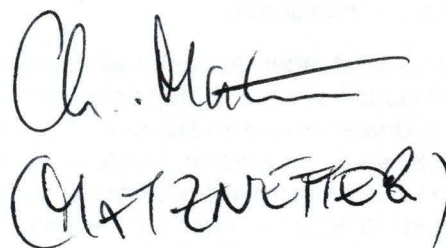 Ch. Matz
(MATZNETTER)